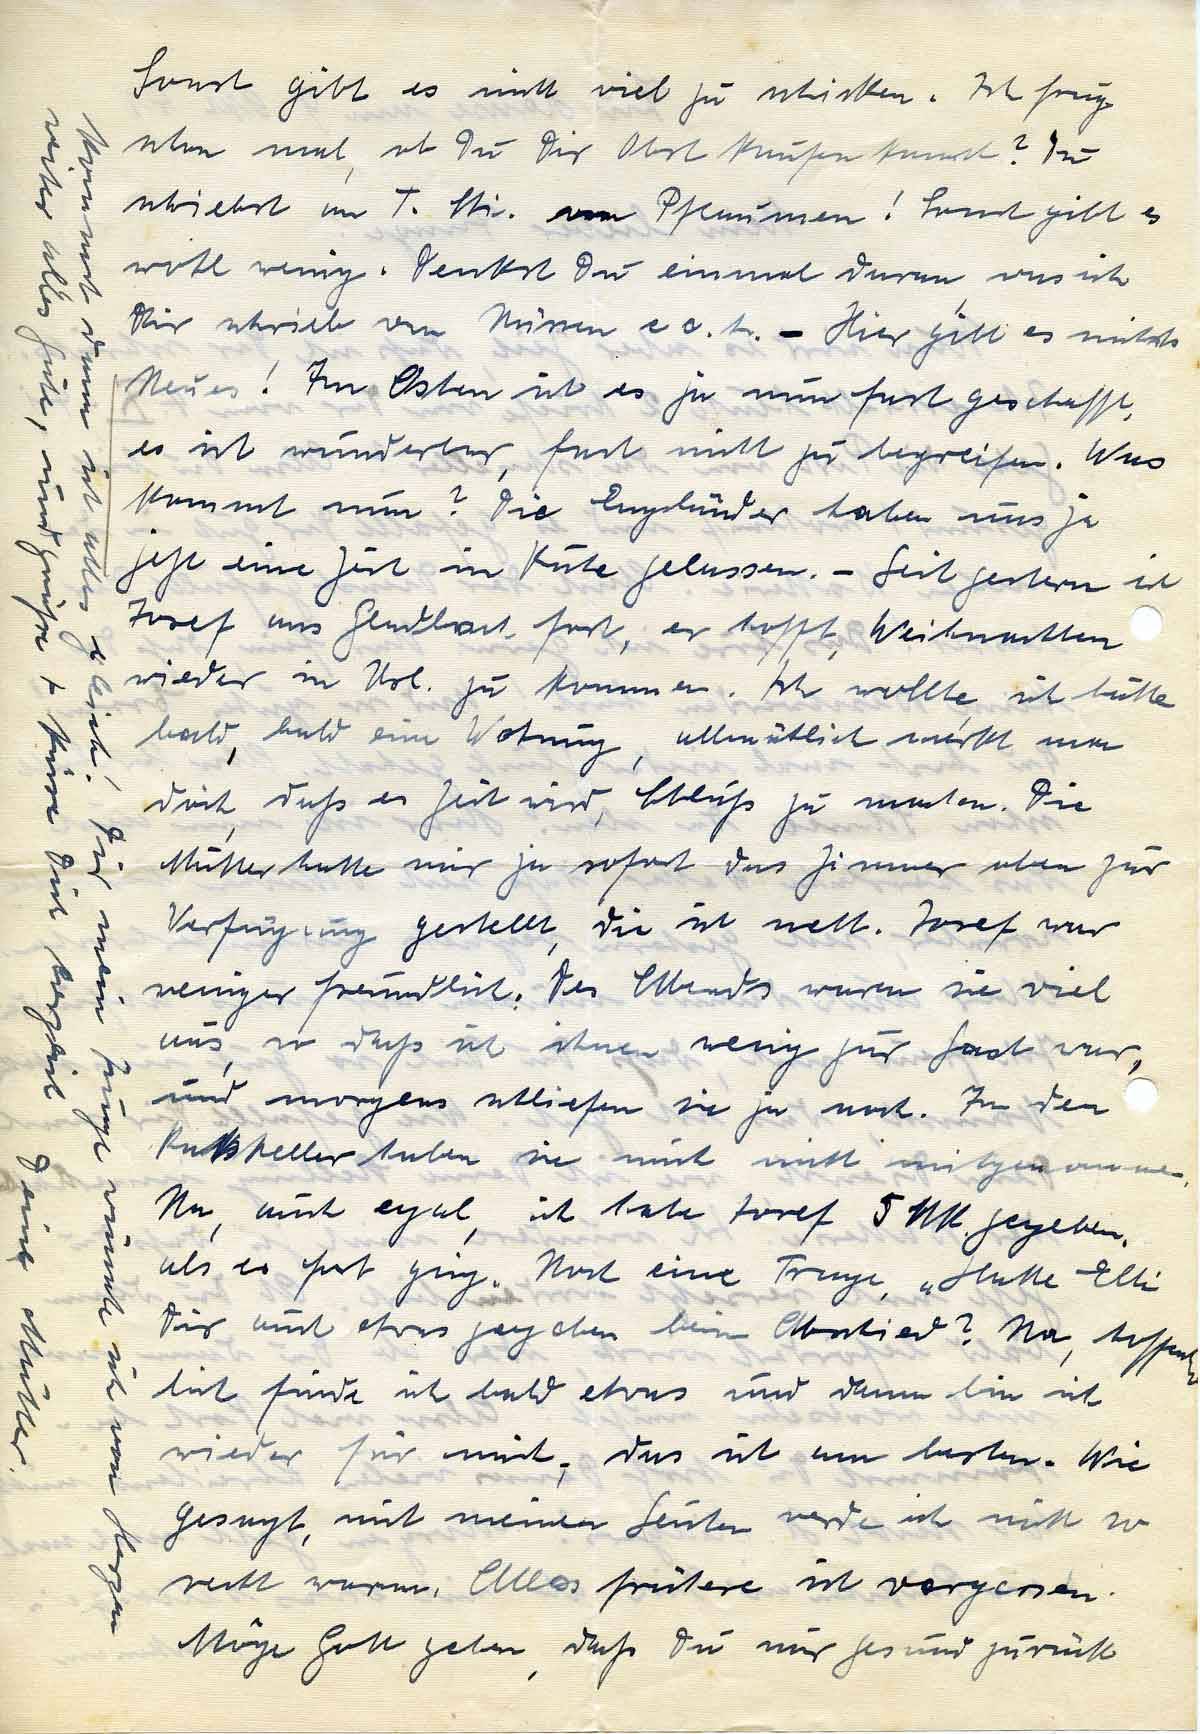 Sonst gibt es nicht viel zu schicken. Ich frug
schon mal, ob Du Dir Obst kaufen kannst? Du
schriebst an T. Mi. von Pflaumen! Sonst gibt es
wohl wenig. Denkst Du einmal daran, was ich
Dir schrieb von Nüssen e c. t. – Hier gibt es nichts
Neues! Im Osten ist es ja nun fast geschafft,
es ist wunderbar, fast nicht zu begreifen. Was
kommt nun? Die Engländer haben uns ja
jetzt eine Zeit in Ruhe gelassen. – Seit gestern ist
Josef aus Gladbach fort, er hofft, Weihnachten
wieder in Url. zu kommen. Ich wollte, ich hätte
bald, bald eine Wohnung, allmählich merkt man
doch, daß es Zeit wird, Schluß zu machen. Die
Mutter hatte mir ja sofort das Zimmer oben zur
Verfügung gestellt, die ist nett. Josef war
weniger freundlich. Des Abends waren sie viel
aus, so daß ich ihnen wenig zur Last war,
und morgens schliefen sie ja noch. In den
Ratskeller haben sie mich nicht mitgenommen.
Na, auch egal, ich habe Josef 5 MK. gegeben,
als es fort ging. Noch eine Frage, „Hatte Elli
Dir auch etwas gegeben beim Abschied? Na, hoffent-
lich finde ich bald etwas und dann bin ich
wieder für mich, das ist am besten. Wie
gesagt, mit meinen Leuten werde ich nicht so
recht warm. Alles frühere ist vergessen.
Möge Gott geben, daß Du nur gesund zurück
kommst dann ist alles gleich! Dir mein Junge wünsche ich von Herzen
weiter alles Gute, und grüße + küsse Dich herzlich Deine Mutter.